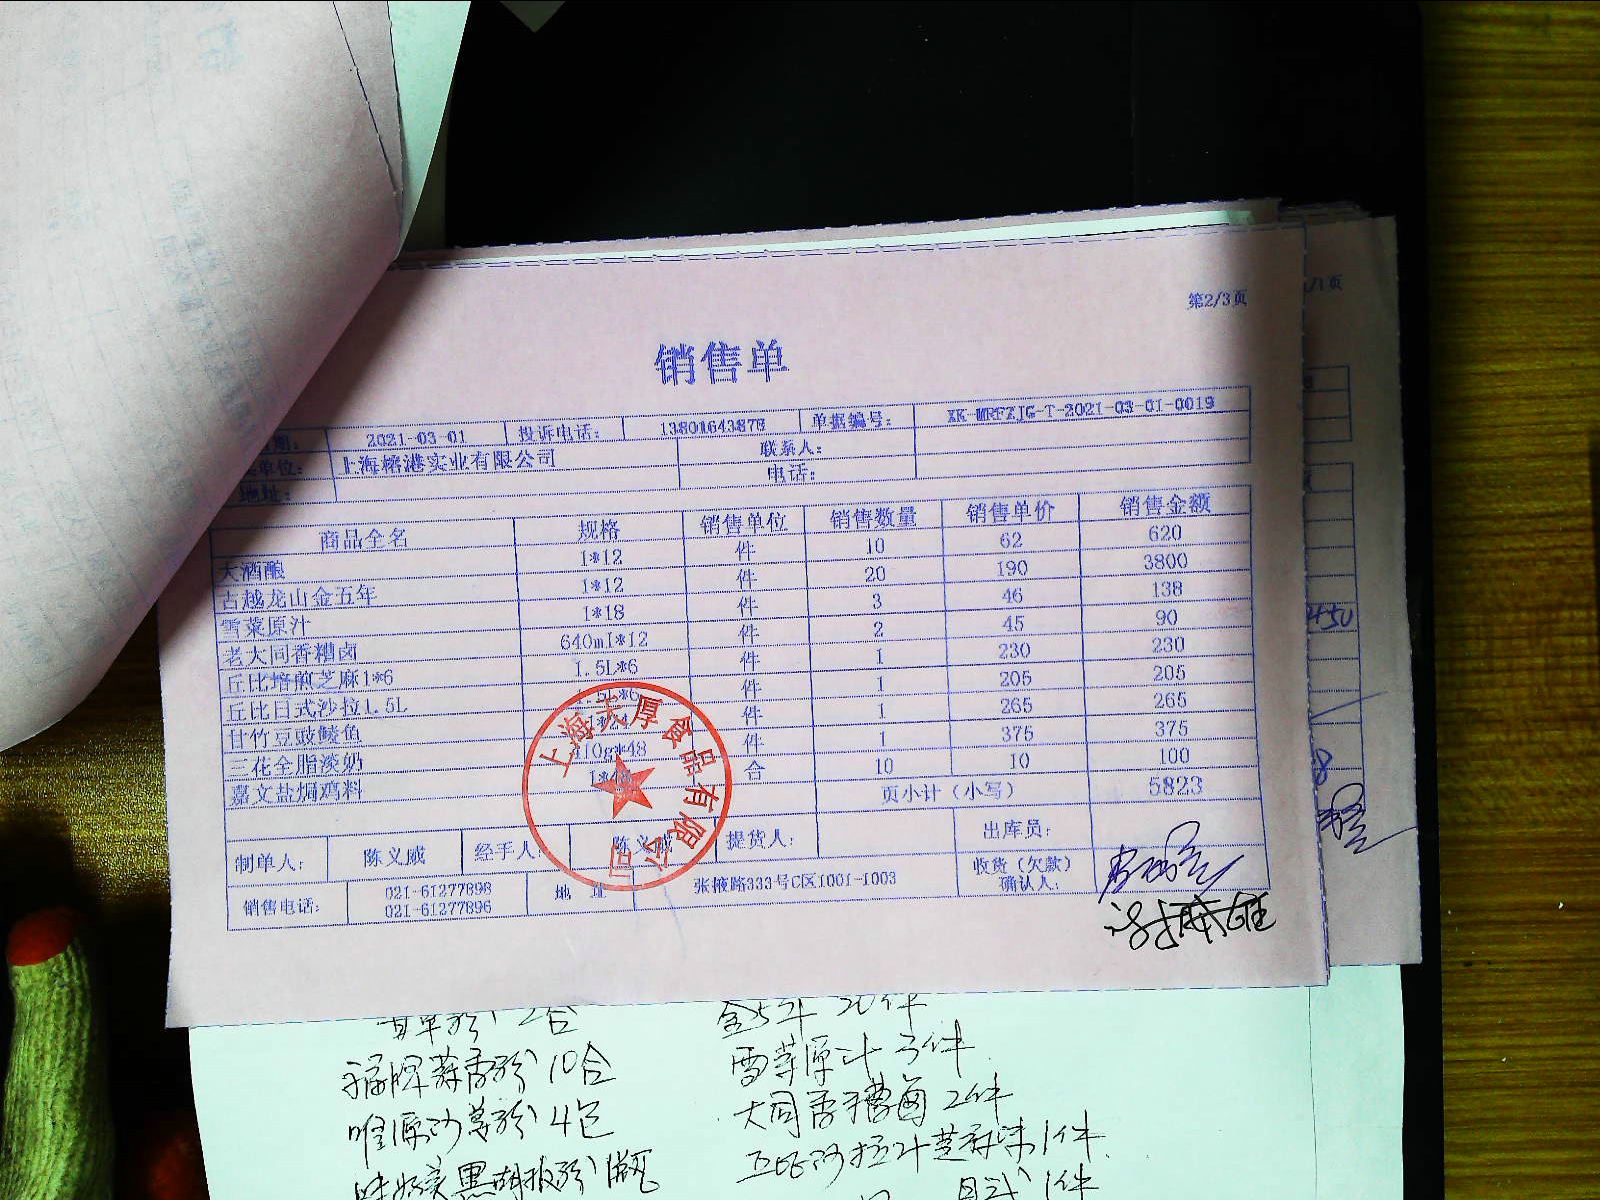 第2/3页
/1页
销售单
期： 2021-03-01 投诉电话： 13801643878 单据编号： XK-MRFZJG-T-2021-03-01-0019
单位： 上海榕港实业有限公司 联系人：
地址： 电话：
商品全名 规格 销售单位 销售数量 销售单价 销售金额
大酒酿 1*12 件 10 62 620
古越龙山金五年 1*12 件 20 190 3800
雪菜原汁 1*18 件 3 46 138
老大同香糟卤 640ml*12 件 2 45 90
丘比培煎芝麻1*6 1.5L*6 件 1 230 230
丘比日式沙拉1.5L 1.5L*6 件 1 205 205
甘竹豆豉鲮鱼 1*24 件 1 265 265
三花全脂淡奶 410g*48 件 1 375 375
嘉文盐焗鸡料 合 10 10 100
页小计（小写） 5823
制单人： 陈义威 经手人： 陈义威 提货人： 出库员：
销售电话： 021-61277898 021-61277896 地 址 张掖路333号C区1001-1003 收货（欠款）确认人：
上海天厚食品有限公司
2合 金5年 20件
福牌蒜香粉 10合 雪菜原汁 3件
4包 大同香糟卤 2件
黑胡椒粉 1瓶 丘比沙拉汁芝麻味 1件
日式 1件